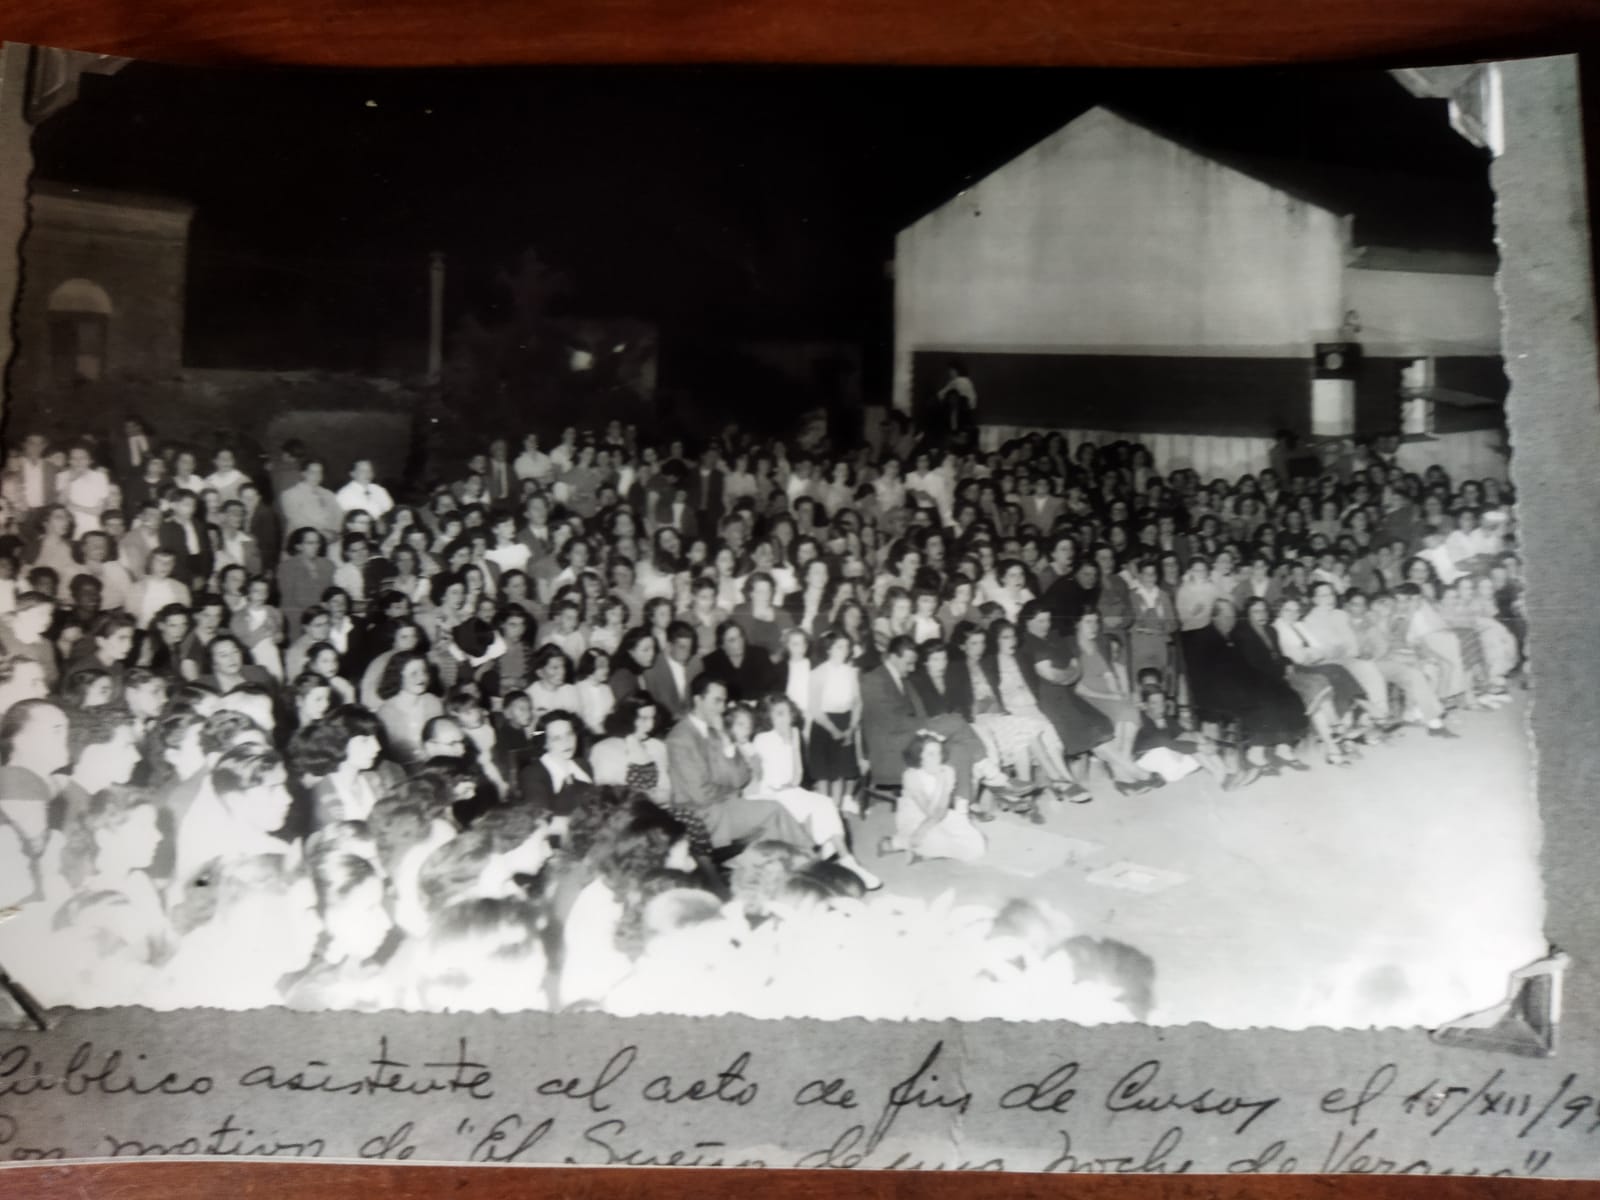 Público asistente al acto de fin de Cursos el 15/XII/94
Con motivo de "El Sueño de una Noche de Verano"